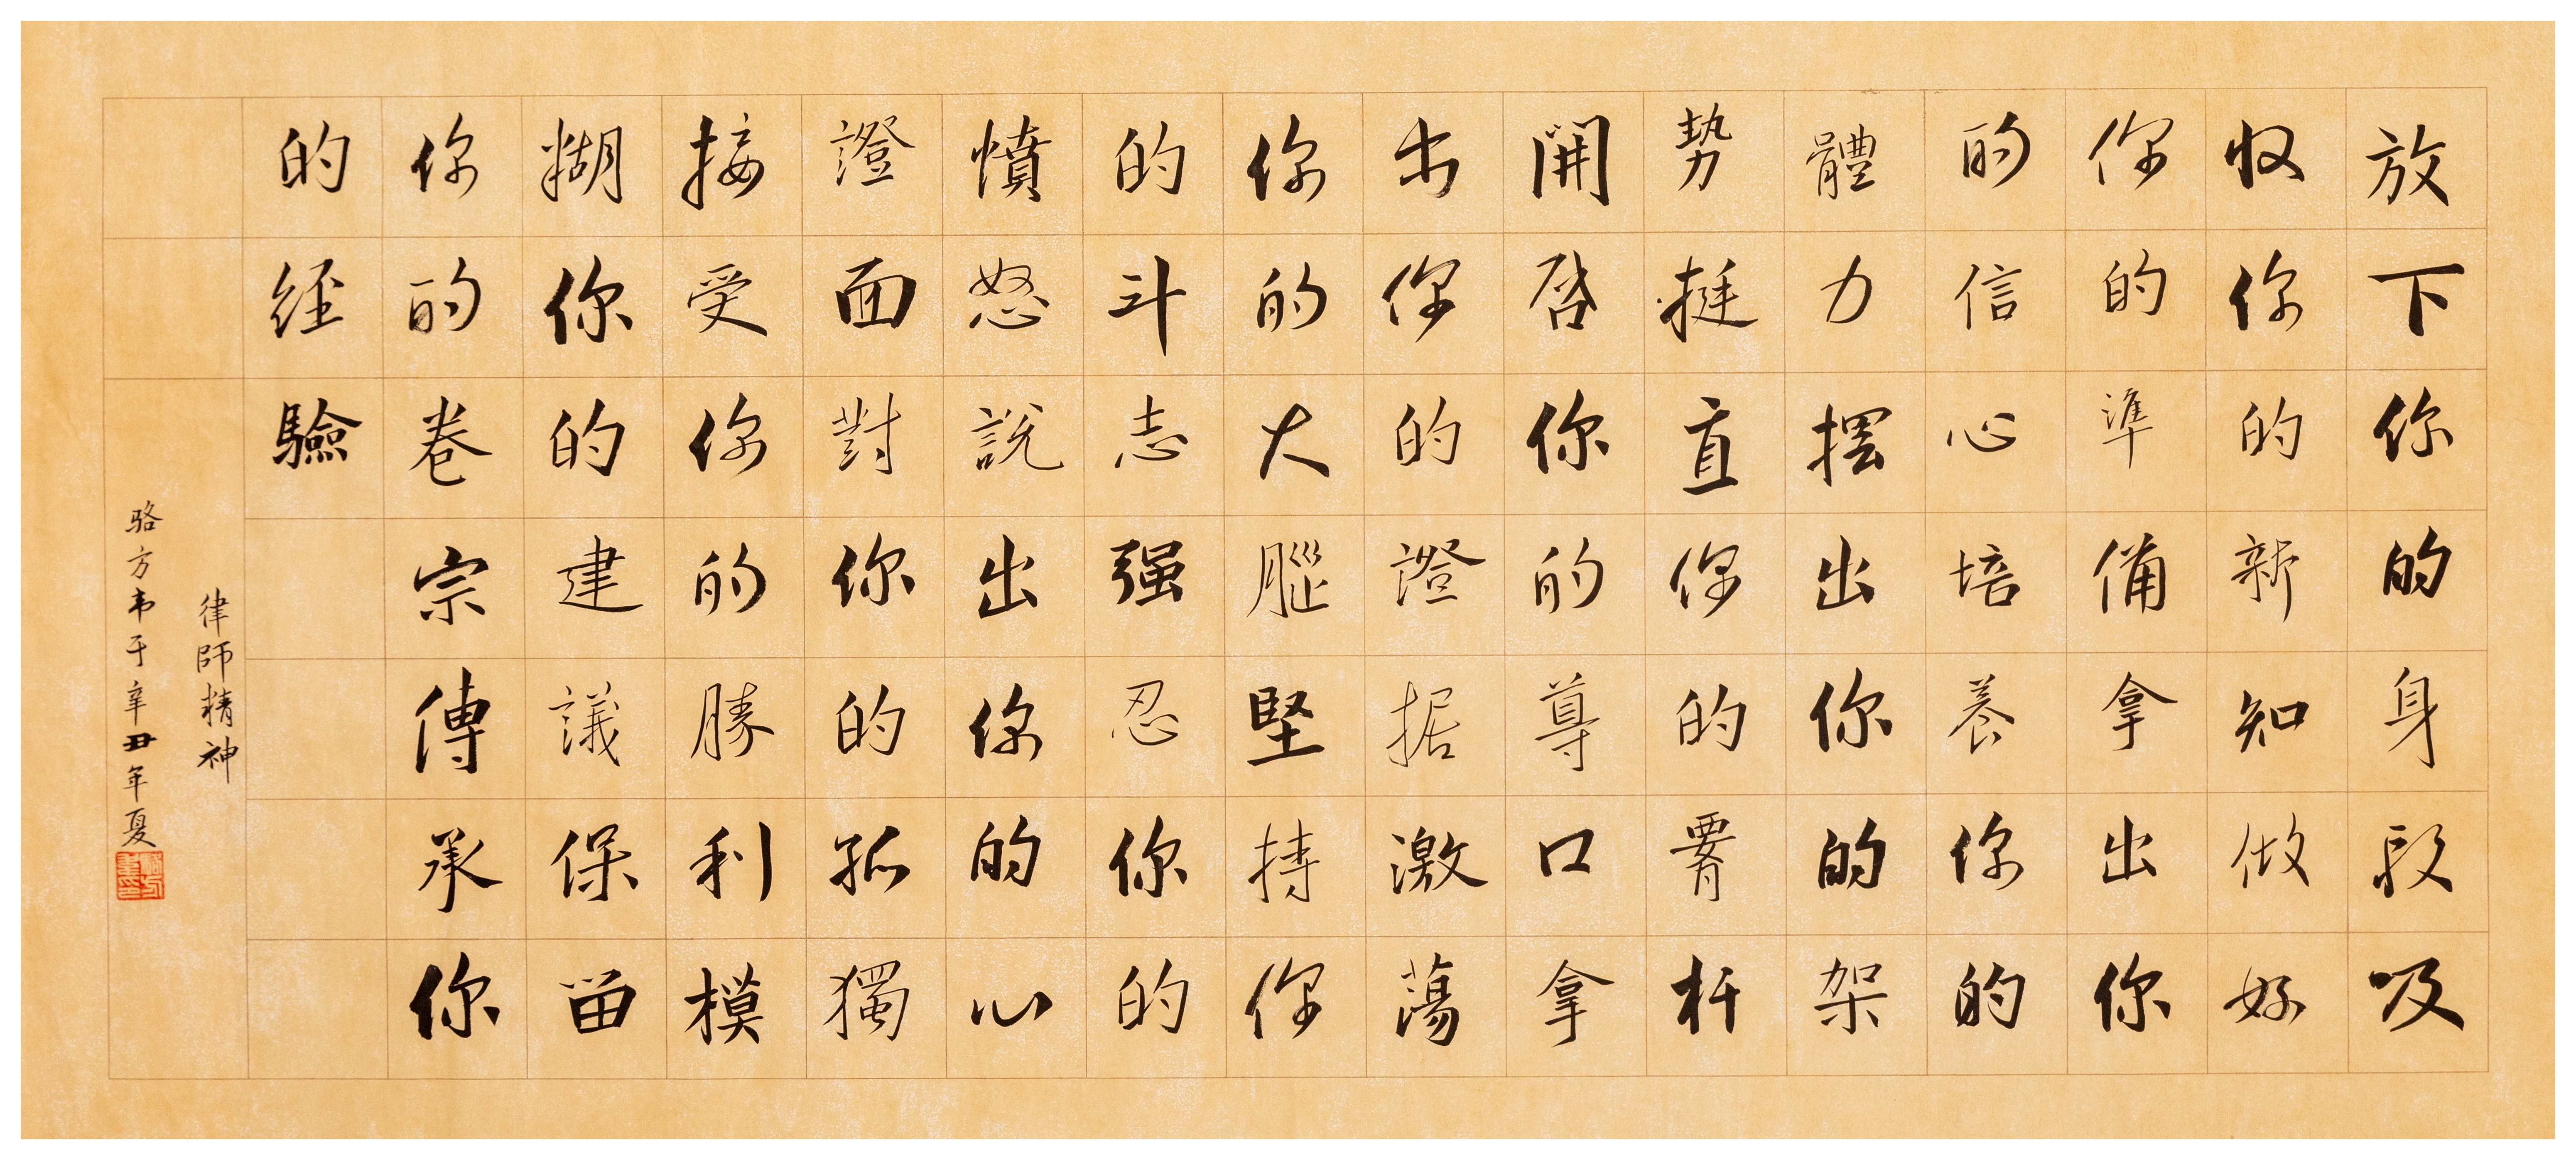 放下你的身段吸
收你的新知做好
你的準備拿出你
的信心培養你的
體力摆出你的架
势挺直你的脊杆
開启你的尊口拿
出你的證据激蕩
你的大腦堅持你
的斗志强忍你的
憤怒說出你的心
證面對你的孤獨
接受你的勝利模
糊你的建議保留
你的卷宗傳承你
的经驗
律師精神
骆方韦于辛丑年夏